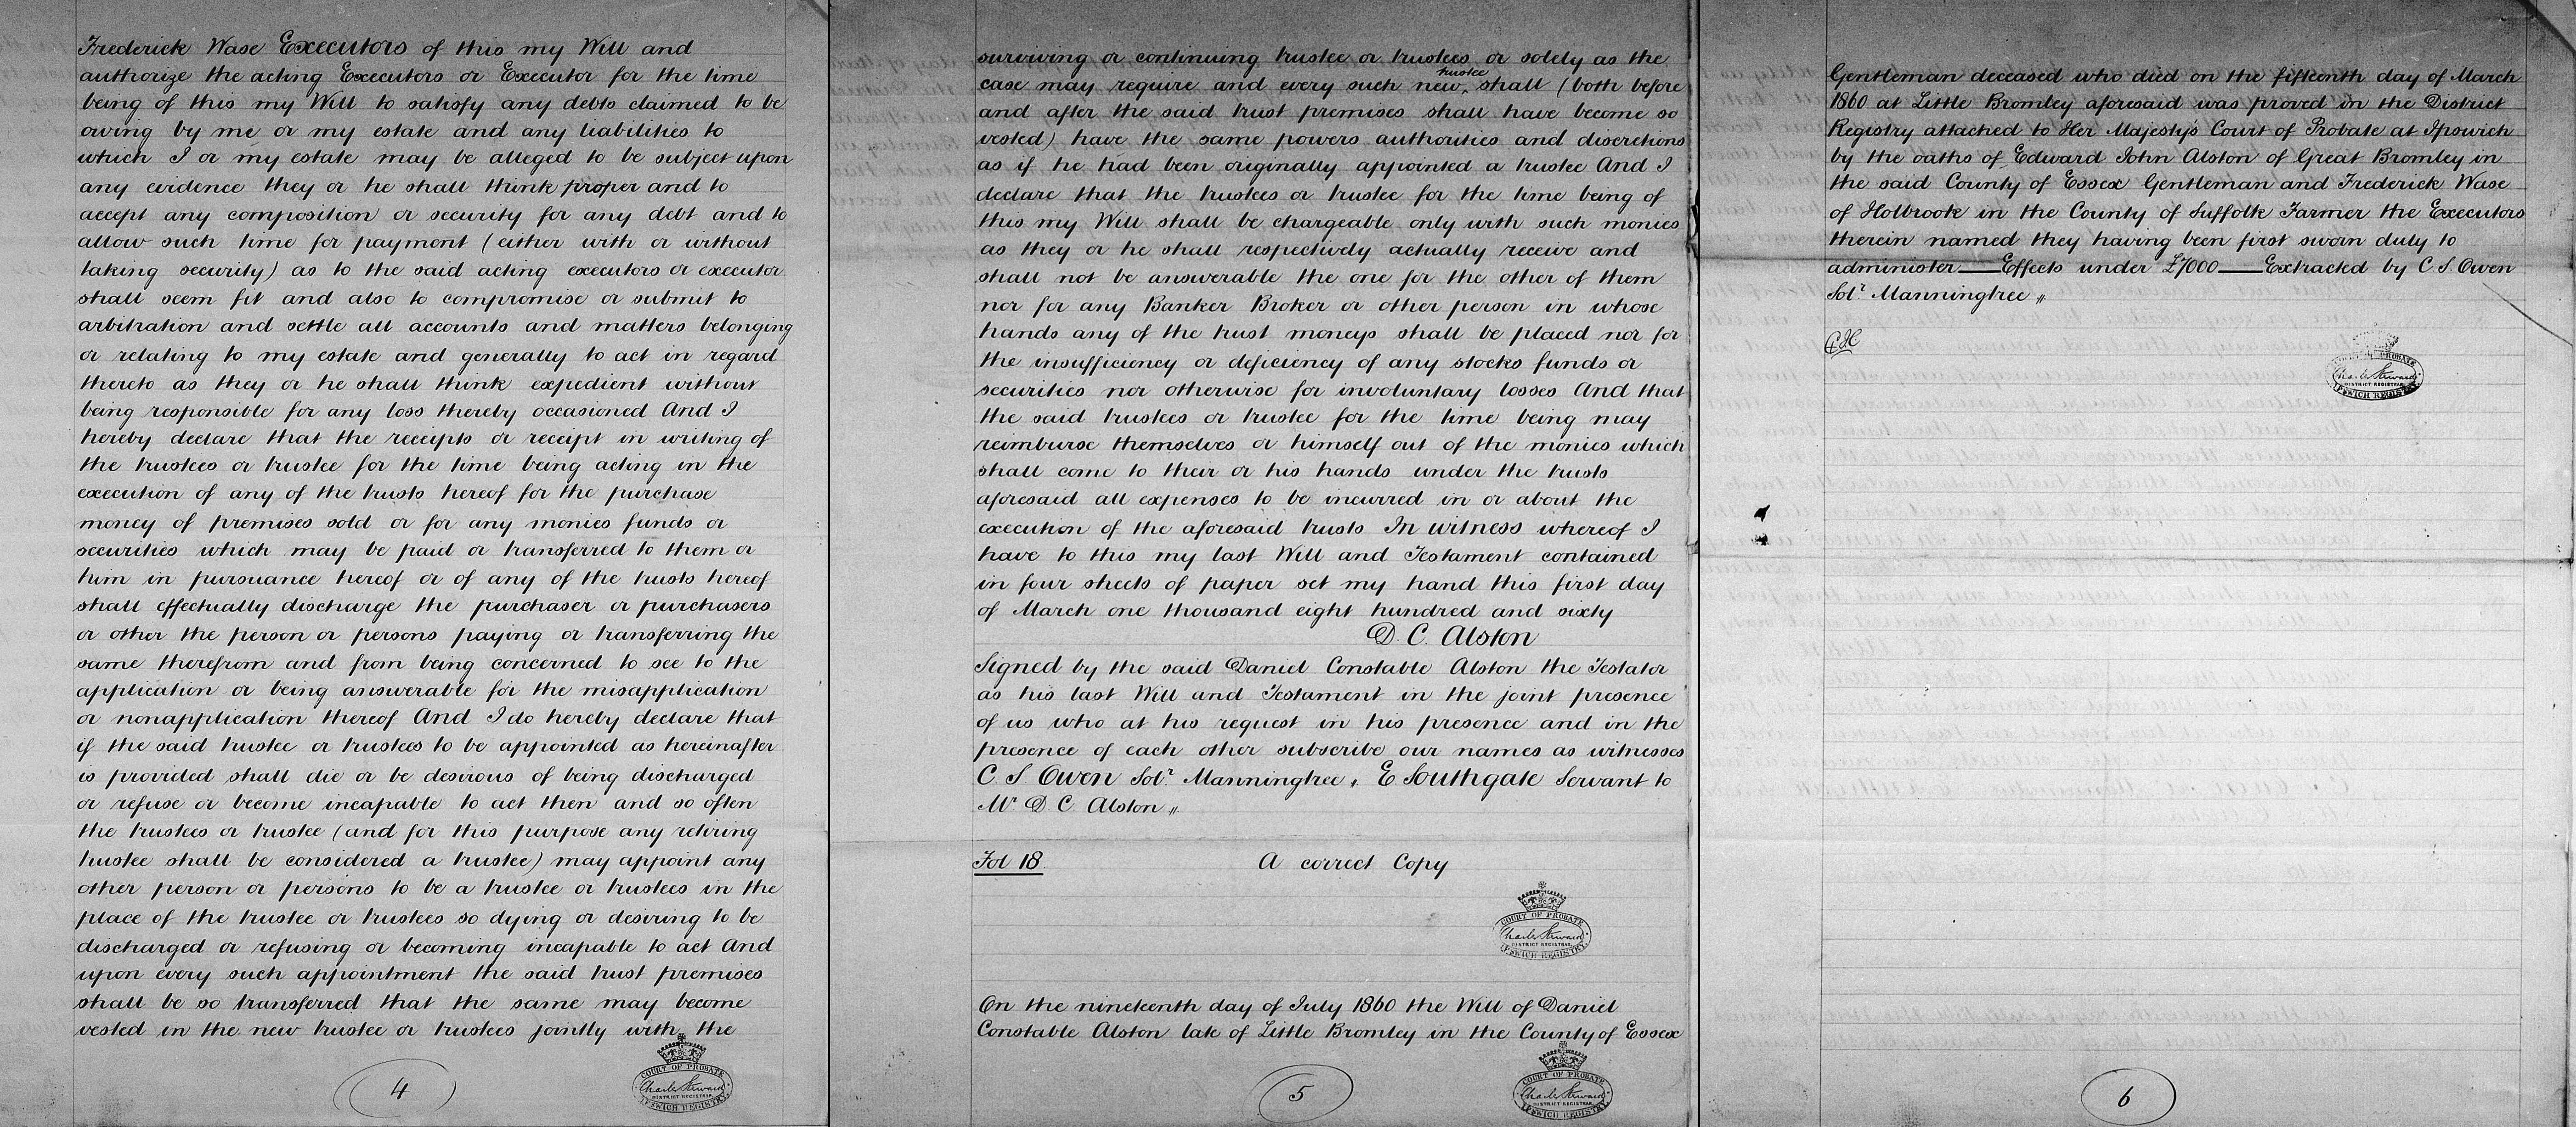 Frederick Wase Executors of this my Will and
authorize the acting Executors or Executor for the time
being of this my Will to satisfy any debts claimed to be
owing by me or my estate and any liabilities to
which I or my estate may be alleged to be subject upon
any evidence they or he shall think proper and to
accept any composition or security for any debt and to
allow such time for payment (either with or without
taking security) as to the said acting executors or executor
shall seem fit and also to compromise or submit to
arbitration and settle all accounts and matters belonging
or relating to my estate and generally to act in regard
thereto as they or he shall think expedient without
being responsible for any loss thereby occasioned And I
hereby declare that the receipts or receipt in writing of
the trustees or trustee for the time being acting in the
execution of any of the trusts hereof for the purchase
money of premises sold or for any monies funds or
securities which may be paid or transferred to them or
him in pursuance hereof or of any of the trusts hereof
shall effectually discharge the purchaser or purchasers
or other the person or persons paying or transferring the
same therefrom and from being concerned to see to the
application or being answerable for the misapplication
or nonapplication thereof And I do hereby declare that
if the said trustee or trustees to be appointed as hereinafter
is provided shall die or be desirous of being discharged
or refuse or become incapable to act then and so often
the trustees or trustee (and for this purpose any retiring
trustee shall be considered a trustee) may appoint any
other person or persons to be a trustee or trustees in the
place of the trustee or trustees so dying or desiring to be
discharged or refusing or becoming incapable to act And
upon every such appointment the said trust premises
shall be so transferred that the same may become
vested in the new trustee or trustees jointly with the
4
COURT OF PROBATE
Charles Steward
DISTRICT REGISTRAR
IPSWICH REGISTRY
surviving or continuing trustee or trustees or solely as the
case may require and every such new trustee shall (both before
and after the said trust premises shall have become so
vested) have the same powers authorities and discretions
as if he had been originally appointed a trustee And I
declare that the trustees or trustee for the time being of
this my Will shall be chargeable only with such monies
as they or he shall respectively actually receive and
shall not be answerable the one for the other of them
nor for any Banker Broker or other person in whose
hands any of the trust moneys shall be placed nor for
the insufficiency or deficiency of any stocks funds or
securities nor otherwise for involuntary losses And that
the said trustees or trustee for the time being may
reimburse themselves or himself out of the monies which
shall come to their or his hands under the trusts
aforesaid all expenses to be incurred in or about the
execution of the aforesaid trusts In witness whereof I
have to this my last Will and Testament contained
in four sheets of paper set my hand this first day
of March one thousand eight hundred and sixty
D. C. Alston
Signed by the said Daniel Constable Alston the Testator
as his last Will and Testament in the joint presence
of us who at his request in his presence and in the
presence of each other subscribe our names as witnesses
C. S. Owen Solr. Manningtree, E Southgate Servant to
Mr D C Alston
Fol 18 A correct Copy
COURT OF PROBATE
Charles Steward
DISTRICT REGISTRAR
IPSWICH REGISTRY
On the nineteenth day of July 1860 the Will of Daniel
Constable Alston late of Little Bromley in the County of Essex
5
COURT OF PROBATE
Charles Steward
DISTRICT REGISTRAR
IPSWICH REGISTRY
Gentleman deceased who died on the fifteenth day of March
1860 at Little Bromley aforesaid was proved in the District
Registry attached to Her Majesty's Court of Probate at Ipswich
by the oaths of Edward John Alston of Great Bromley in
the said County of Essex Gentleman and Frederick Wase
of Holbrook in the County of Suffolk Farmer the Executors
therein named they having been first sworn duly to
administer — Effects under £7000 — Extracted by C. S. Owen
Solr Manningtree
PROBATE
Charles Steward
DISTRICT REGISTRAR
IPSWICH REGISTRY
6